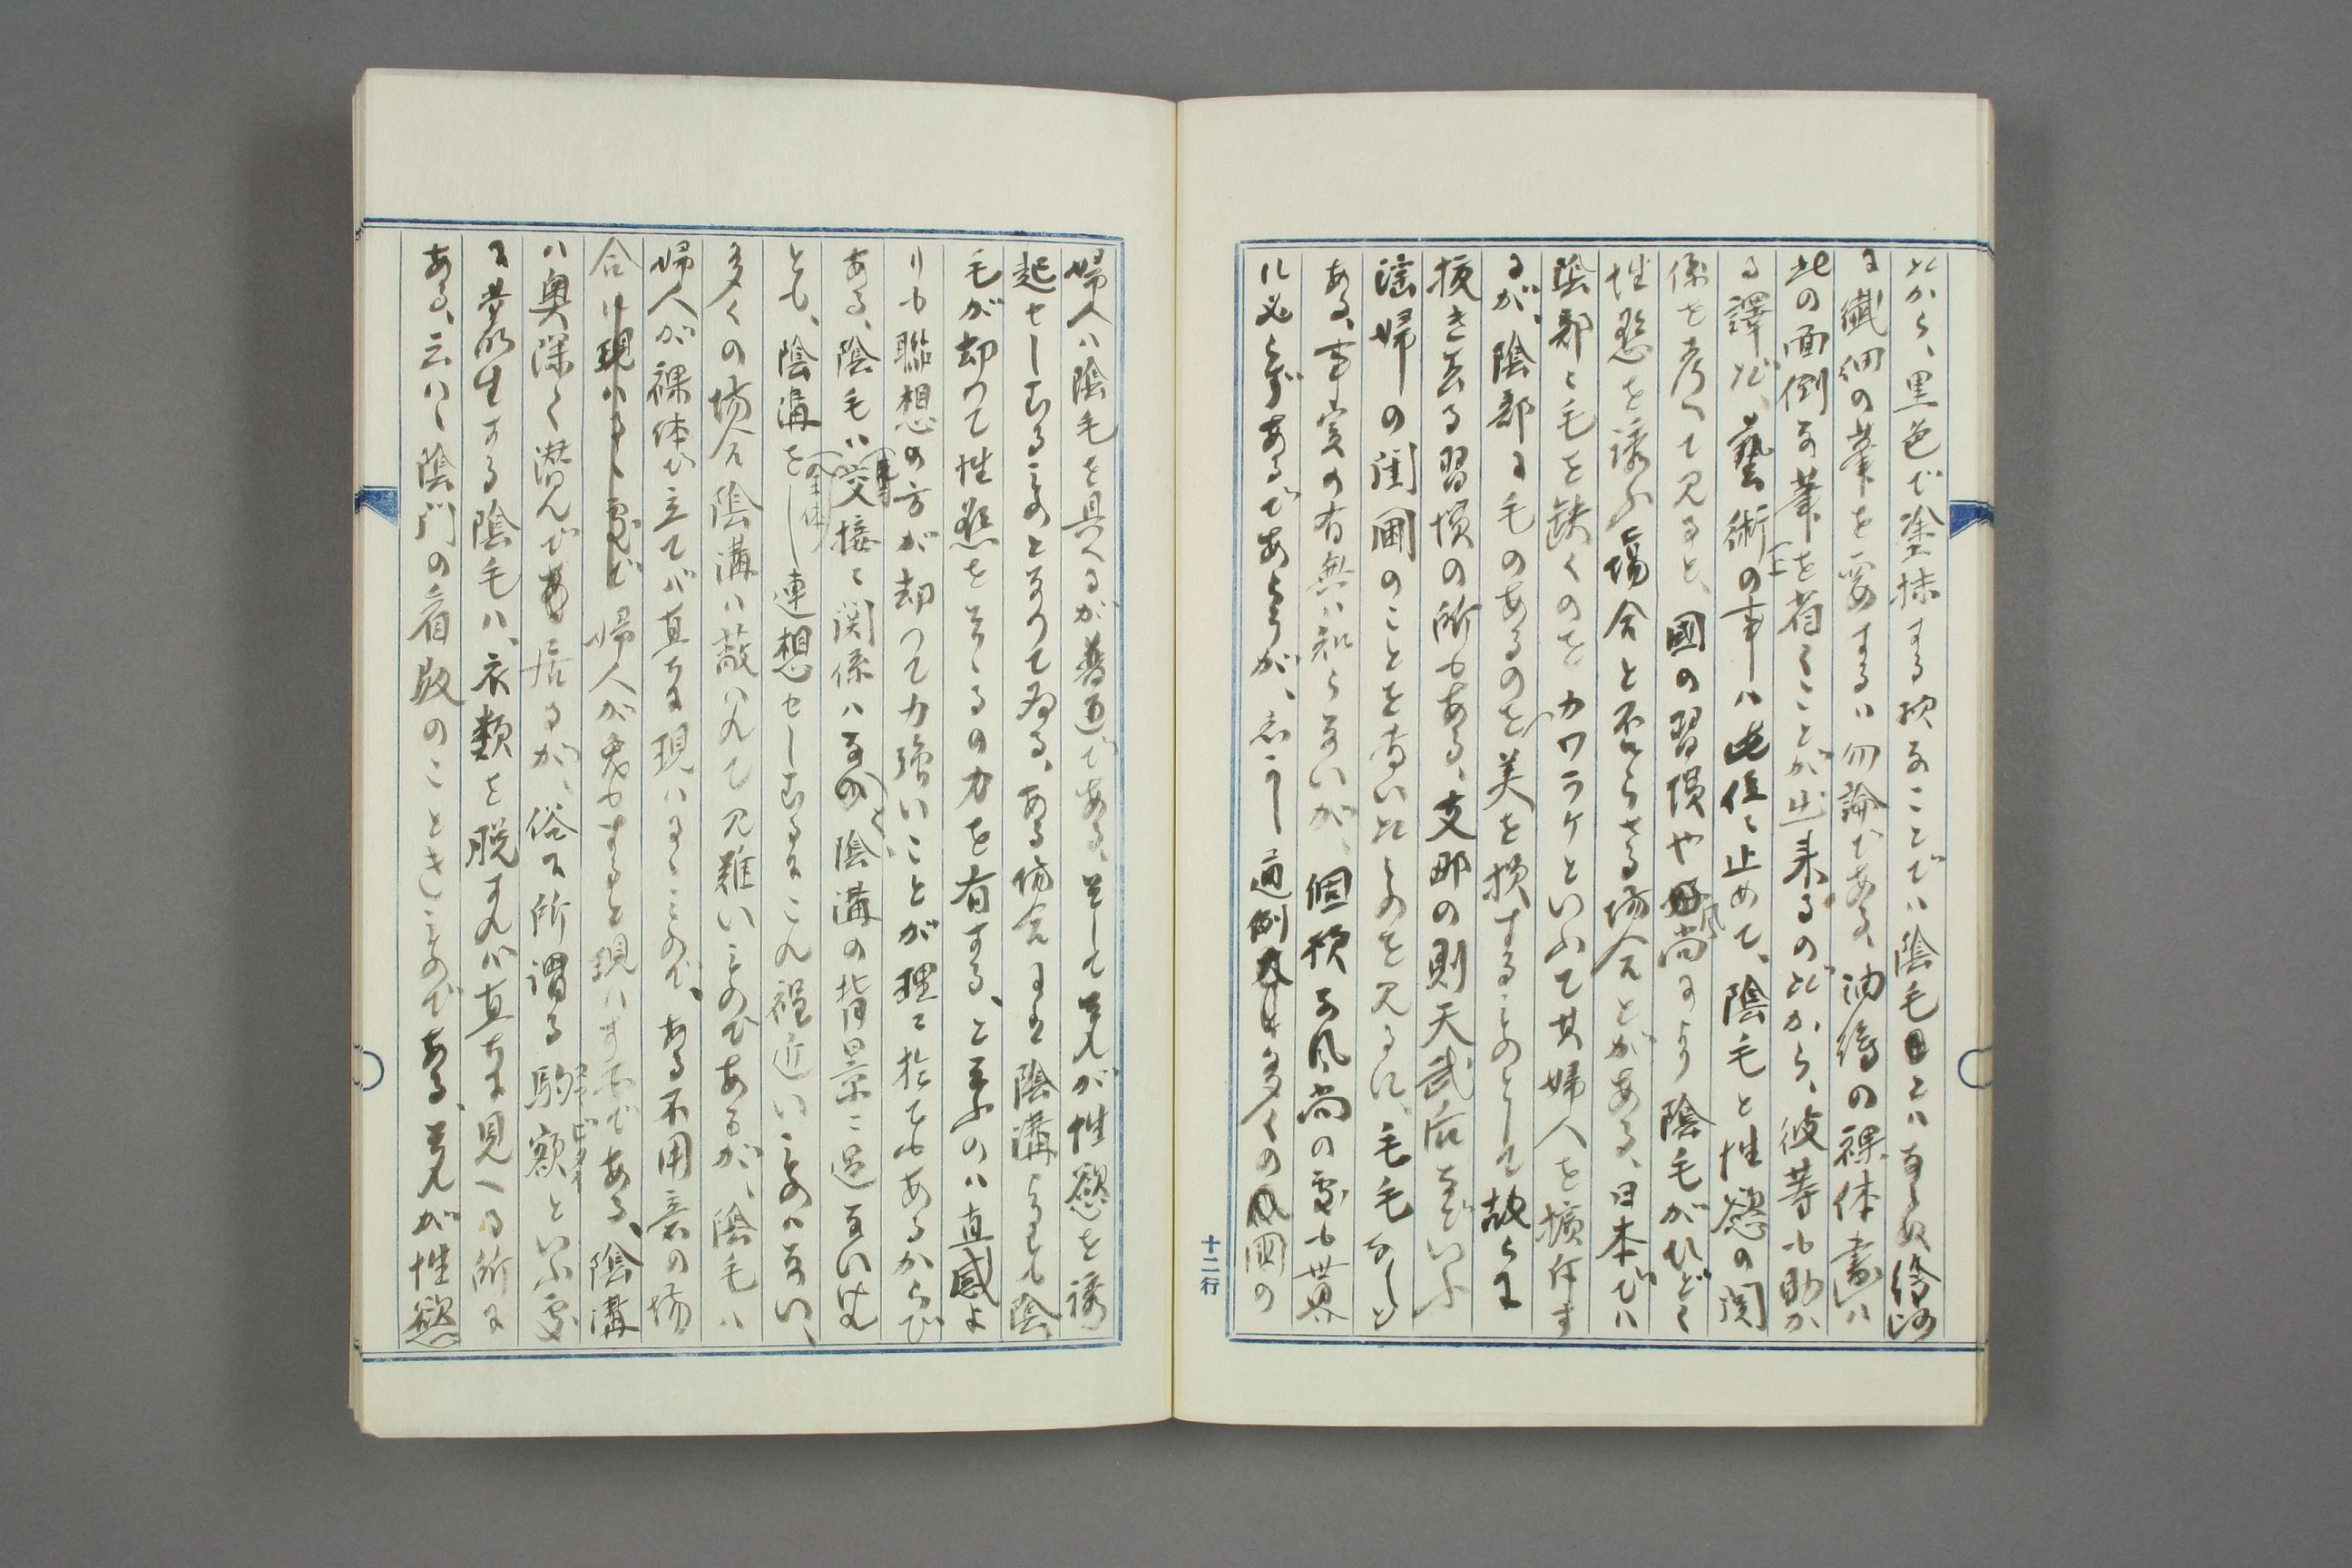 だから、黒色で塗抹する様なことでハ陰毛とハならぬ、繪の
に纎細の筆を要するハ勿論である、油繪の裸体畫ハ
此の面倒な筆を省くことが出来るのだから、彼等も助か
る譯だ、藝術の事ハ此位に止めて、陰毛と性慾の関
係を考へて見ると、國の習慣や風尚により陰毛がひどく
性慾を誘ふ場合と否らざる場合とがある、日本でハ
陰部に毛を缺くのをカワラケといふて其婦人を擯斥す
るが、陰部に毛のあるのを美を損するものとして故らに
抜き去る習慣の所もある、支那の則天武后などいふ
淫婦の閨圃のことを書いたものを見るに、毛毛なしと
ある、事実の有無ハ知らないが、個様な風尚の處も世界
に必らずあるであらうが、しかし通例多くの國の
十二行
婦人ハ陰毛を具へるが普通である、そしてそれが性慾を誘
起せしむるものとなつてゐる、ある場合には陰溝よりも陰
毛が却つて性慾をそゝるの力を有する、と云ふのハ直感よ
りも聯想の方が却つて力強いことが理に於てもあるからで
ある、陰毛ハ交接に関係ハなく、陰溝の背景に過ないけれ
とも、陰溝を(全体)連想せしむるにこれ程近いものハない、
多くの場合陰溝ハ蔽ハれて見難いものであるが、陰毛ハ
婦人が裸体で立てバ直ちに現ハるゝもので、ある不用意の場
合に婦人が するを現ハす でである、陰溝
ハ奥深く潜んで居るが、俗に所謂る駒額といふ處
に叢生する陰毛ハ、衣類を脱すれバ直ちに見へる所に
ある、云ハゞ陰門の看板のごときものである、それが性慾